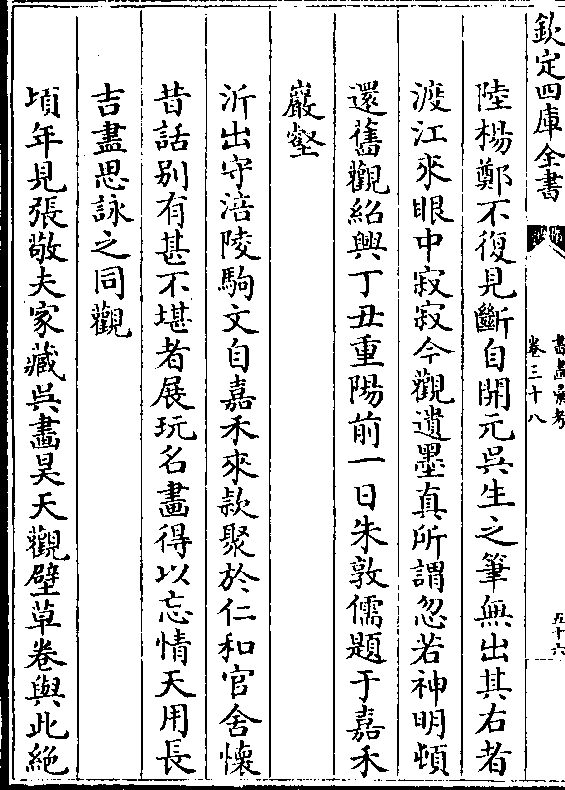 欽定四庫全書
書畫彙考
卷三十八
五十六
陸楊鄭不復見斷自開元吳生之筆無出其右者
渡江來眼中寂寂今觀遺墨真所謂忽若神明頓
還舊觀紹興丁丑重陽前一日朱敦儒題于嘉禾
巖壑
沂出守涪陵駒文自嘉禾來款聚於仁和官舍懷
昔話别有甚不堪者展玩名畫得以忘情天用長
吉盡思詠之同觀
頃年見張敬夫家藏吳畫昊天觀壁草卷與此絶